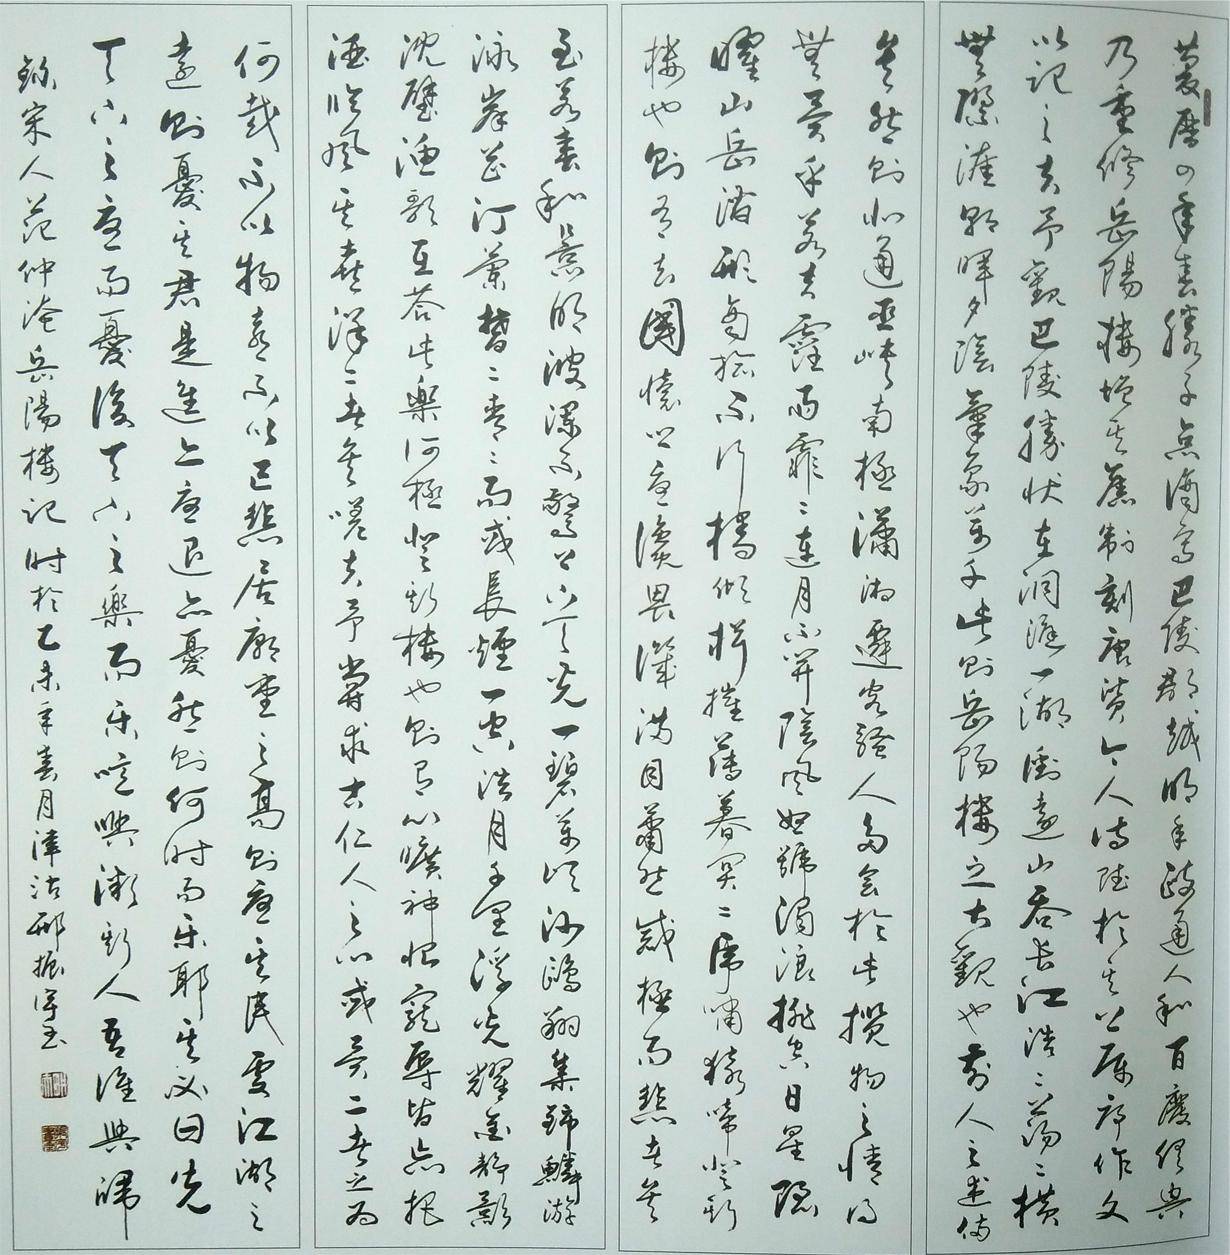 慶曆四年春滕子京謫守巴陵郡越明年政通人和百廢俱興
乃重修岳陽樓增其舊制刻唐賢今人詩賦於其上屬予作文
以記之夫予觀巴陵勝狀在洞庭一湖銜遠山吞長江浩〻蕩〻橫
無際涯朝暉夕陰氣象萬千此則岳陽樓之大觀也前人之述備
矣然則北通巫峽南極瀟湘遷客騷人多會於此攬物之情得
無異乎若夫霪雨霏〻連月不開陰風怒號濁浪排空日星隱
曜山岳潛形商旅不行檣傾楫摧薄暮冥〻虎嘯猿啼登斯
樓也則有去國懷鄉憂讒畏譏滿目蕭然感極而悲者矣
至若春和景明波瀾不驚上下天光一碧萬頃沙鷗翔集錦鱗游
泳岸芷汀蘭鬱〻青〻而或長煙一空皓月千里浮光耀金靜影
沈璧漁歌互答此樂何極登斯樓也則有心曠神怡寵辱皆忘把
酒臨風其喜洋〻者矣嗟夫予嘗求古仁人之心或異二者之為
何哉不以物喜不以己悲居廟堂之高則憂其民處江湖之
遠則憂其君是進亦憂退亦憂然則何時而樂耶其必曰先
天下之憂而憂後天下之樂而樂噫歟微斯人吾誰與歸
錄宋人范仲淹岳陽樓記時於乙未年春月津沽邢振